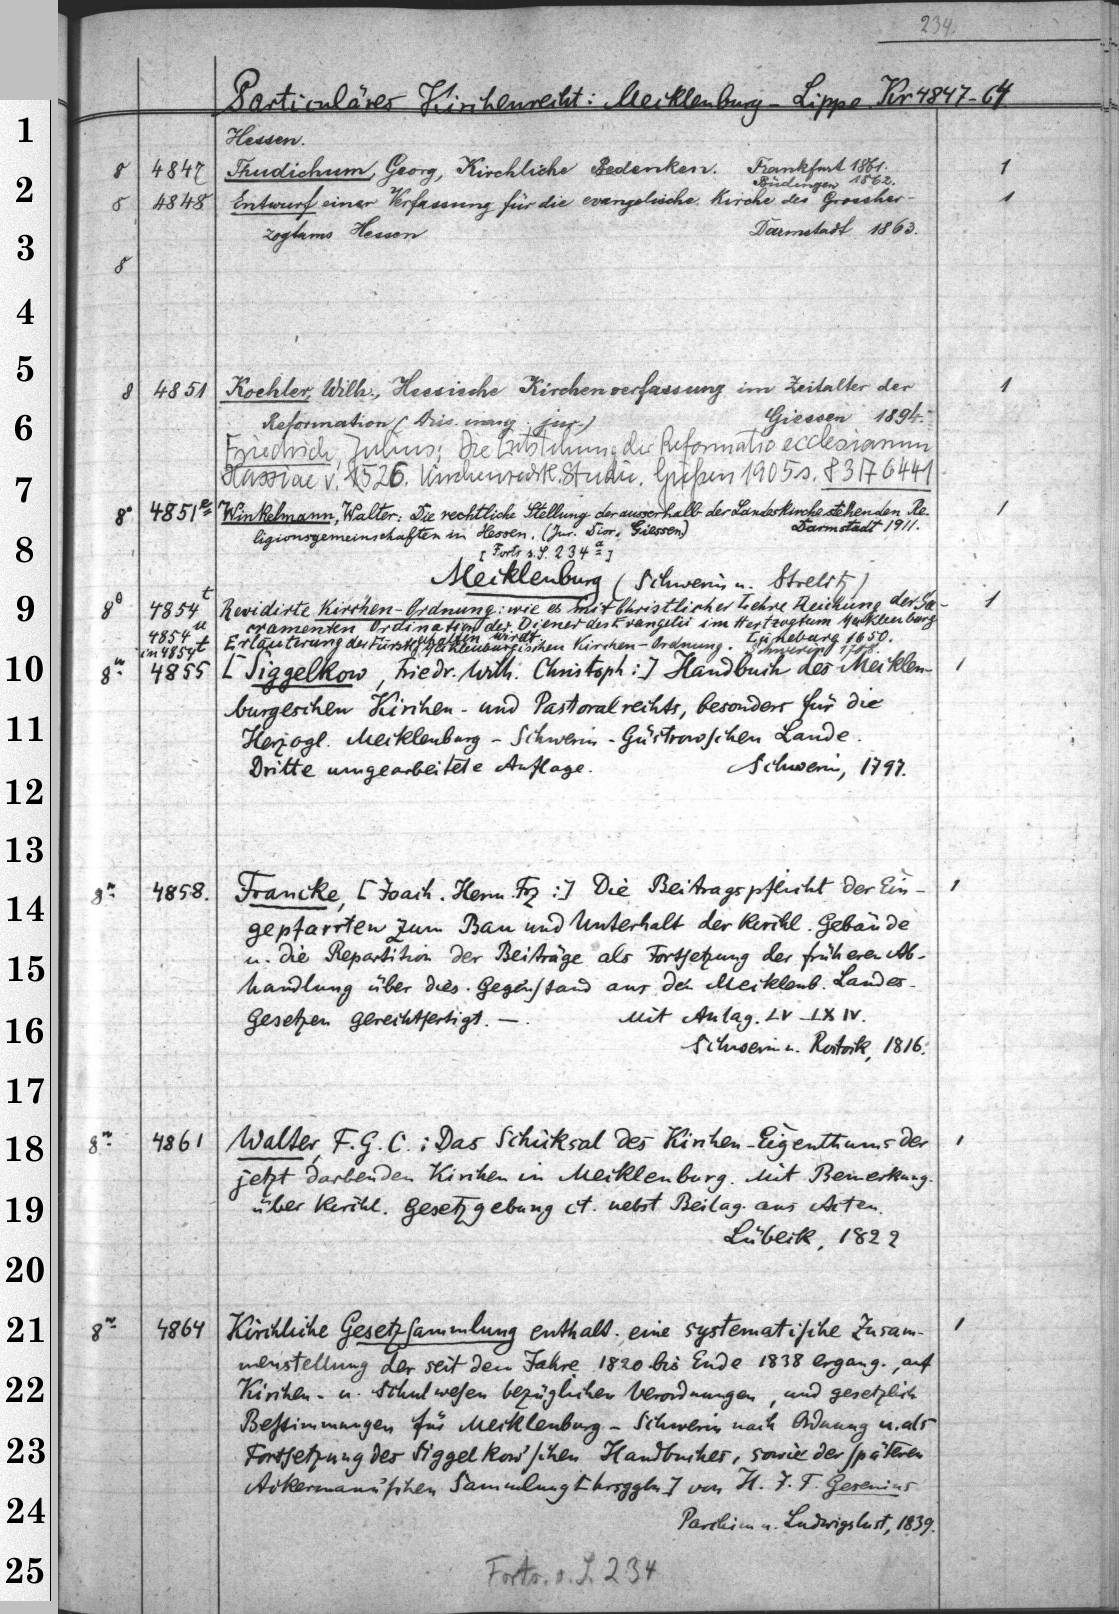 234.
Particuläres Kirchenrecht: Mecklenburg - Lippe Kr 4847-64
1
Hessen.
8 4847 Thudichum, Georg, Kirchliche Bedenken. Frankfurt 1861. 1
Büdingen 1862.
2
8 4848 Entwurf einer Verfassung für die evangelische Kirche des Grossher- 1
zogtums Hessen Darmstadt 1863.
3
8
4
5
8 4851 Koehler, Wilh., Hessische Kirchenverfassung im Zeitalter der 1
6
Reformation (Diss. inaug. jur.) Giessen 1894.
Friedrich, Julius; Die Entstehung der Reformatio ecclesiarum
Hassiae v. 1526. Kirchenrechtl. Studie. Gießen 1905 s. 8 317 6441
7
8° 4851 Winkelmann, Walter: Die rechtliche Stellung der ausserhalb der Landeskirche stehenden Re- 1
ligionsgemeinschaften in Hessen. (Jur. Diss. Giessen) Darmstadt 1911.
8
[Forts s. S. 234 a]
Mecklenburg (Schwerin u. Strelitz)
9
8° 4854 t Revidirte Kirchen-Ordnung: wie es mit Christlicher Lehre Reichung der Sa- 1
cramenten Ordination der Diener des Evangelii im Hertzogtum Mecklenburg
gehalten wirdt. Lüneburg 1650.
4854 u in 4854 t Erläuterung der Fürstl. Mecklenburgischen Kirchen-Ordnung. Schwerin 1708.
10
8° 4855 [Siggelkow, Friedr. Wilh. Christoph:] Handbuch des Mecklen- 1
burgischen Kirchen- und Pastoralrechts, besonders für die
11
Herzogl. Mecklenburg-Schwerin-Güstrowschen Lande.
Dritte umgearbeitete Auflage. Schwerin, 1797.
12
13
8° 4858. Francke, [Joach. Herm. Frz:] Die Beitragspflicht der Ein- 1
14
gepfarrten zum Bau und Unterhalt der kirchl. Gebäude
u. die Repartition der Beiträge als Fortsetzung der früheren Ab-
15
handlung über dies. Gegenstand aus den Mecklenb. Landes-
Gesetzen gerechtfertigt. —. Mit Anlag. LV - LXIV.
16
Schwerin u. Rostock, 1816.
17
18
8° 4861 Walter, F. G. C.: Das Schicksal des Kirchen-Eigenthums der 1
jetzt darbenden Kirchen in Mecklenburg. Mit Bemerkung.
19
über kirchl. Gesetzgebung ct. nebst Beilag. aus Acten.
Lübeck, 1822
20
21
8° 4864 Kirchliche Gesetzsammlung enthalt. eine systematische Zusam- 1
menstellung der seit dem Jahre 1820 bis Ende 1838 ergang., auf
22
Kirchen- u. Schulwesen bezüglichen Verordnungen, und gesetzlich
Bestimmungen für Mecklenburg-Schwerin nach Ordnung u. als
23
Fortsetzung des Siggelkow'schen Handbuches, sowie der späteren
Ackermann'schen Sammlung [hrsggbn] von H. F. F. Gesenius
24
Parchim u. Ludwigslust, 1839.
25
Forts. s. S. 234